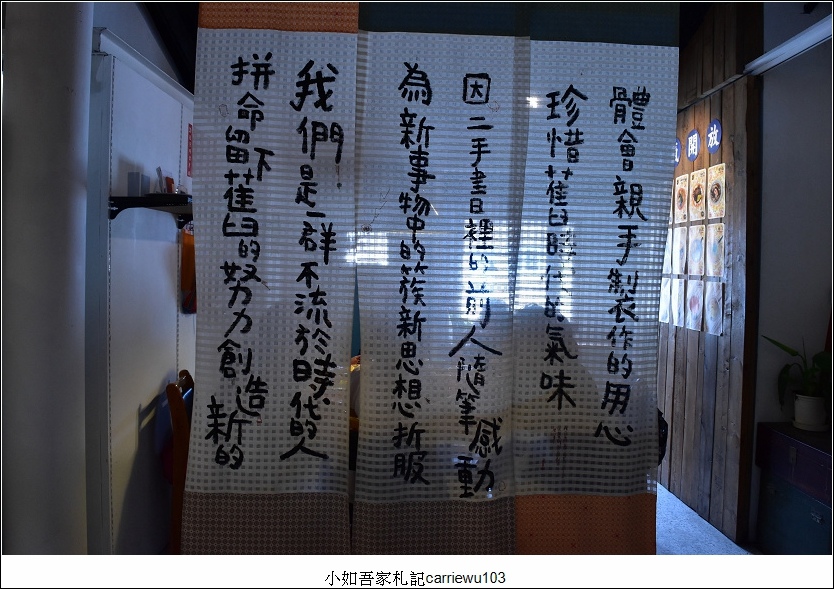 體會親手製作的用心
珍惜舊時代的氣味
因二手書裡的前人隨筆感動
為新事物中的簇新思想折服
我們是一群不流於時代的人
拼命留下舊的努力創造新的
開放
小如吾家札記carriewu103